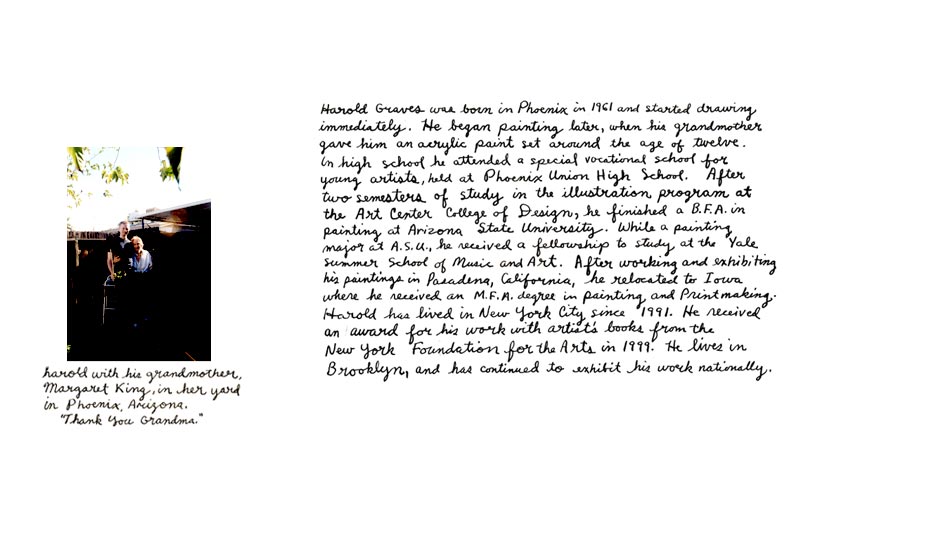 Harold Graves was born in Phoenix in 1961 and started drawing
immediately. He began painting later, when his grandmother
gave him an acrylic paint set around the age of twelve.
In high school he attended a special vocational school for
young artists, held at Phoenix Union High School. After
two semesters of study in the illustration program at
the Art Center College of Design, he finished a B.F.A. in
painting at Arizona State University. While a painting
major at A.S.U., he received a fellowship to study at the Yale
Summer School of Music and Art. After working and exhibiting
his paintings in Pasadena, California, he relocated to Iowa
where he received an M.F.A. degree in painting and Printmaking.
Harold has lived in New York City since 1991. He received
an award for his work with artist's books from the
New York Foundation for the Arts in 1999. He lives in
Brooklyn, and has continued to exhibit his work nationally.
harold with his grandmother,
Margaret King, in her yard
in Phoenix, Arizona.
"Thank You Grandma."